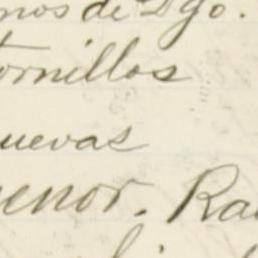 nos de Dgo.
ornillos
uevas
enor. Ra